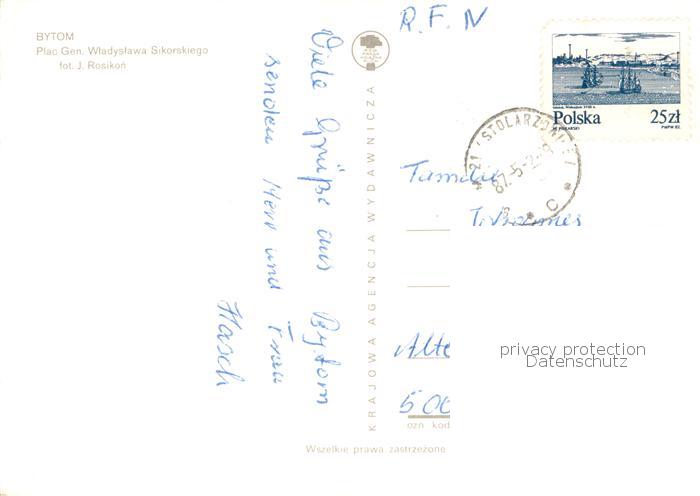 BYTOM
Plac Gen. Władysława Sikorskiego
fot. J. Rosikoń
Viele Grüße aus Bytom
senden Herr und Frau
Hasch
KRAJOWA AGENCJA WYDAWNICZA
R.F.N
Polska 25zł
PWPW 82.
STOLARZOWICE
87-5-2
C
Familie
Alte
500
ozn kod
Wszelkie prawa zastrzeżone
privacy protection
Datenschutz